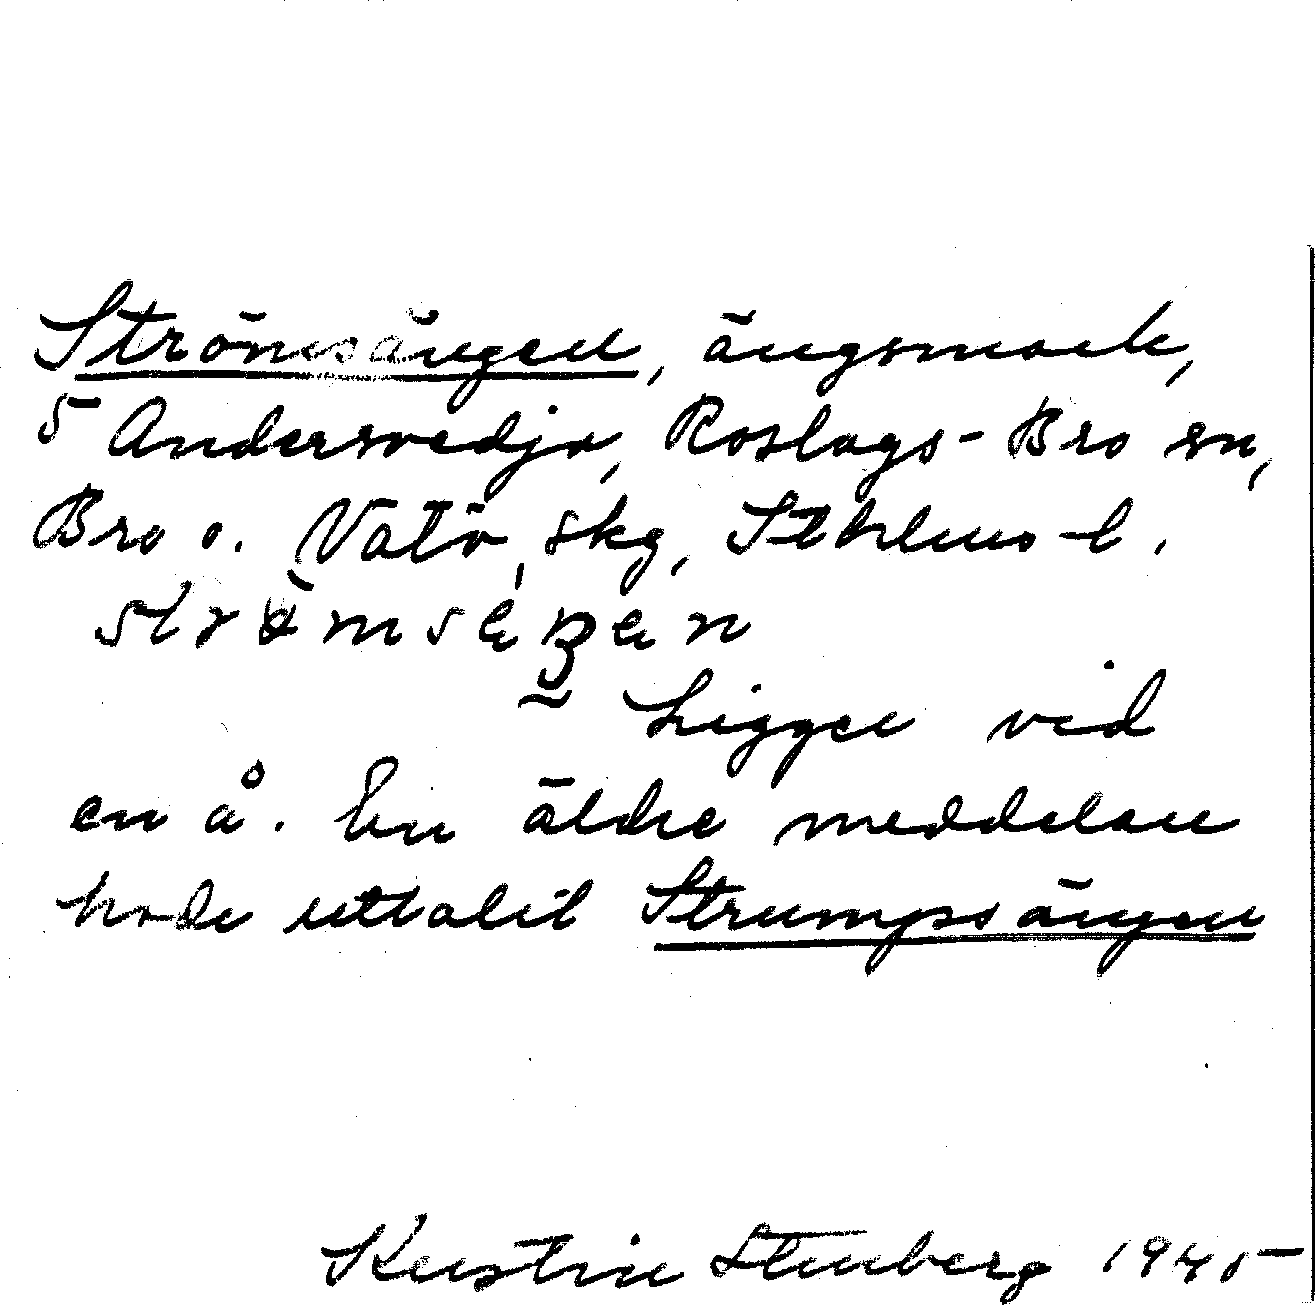 Strömsängen, ängsmark,
5 Andersvedja, Roslags-Bro sn,
Bro o. Vätö skg, Sthlms l.
Ligger vid
en å. En äldre meddelare
hade uttalit Strumpsängen
Kerstin Stenberg 1945